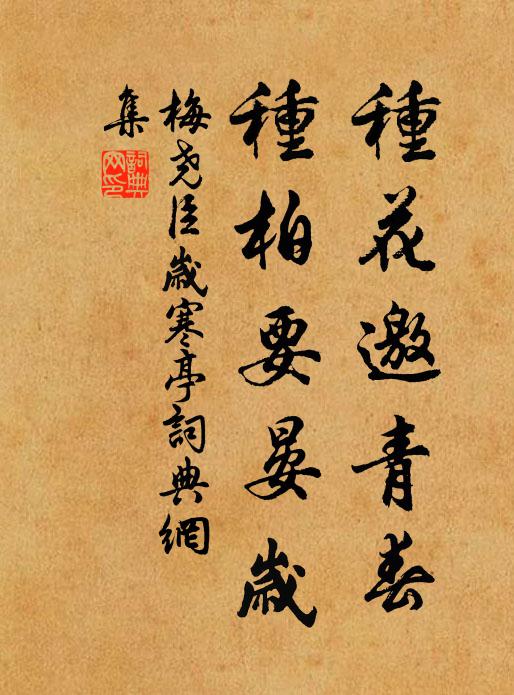 種花邀青春
種柏要晏歲
梅堯臣歲寒亭詞典網
集
詞典
网印